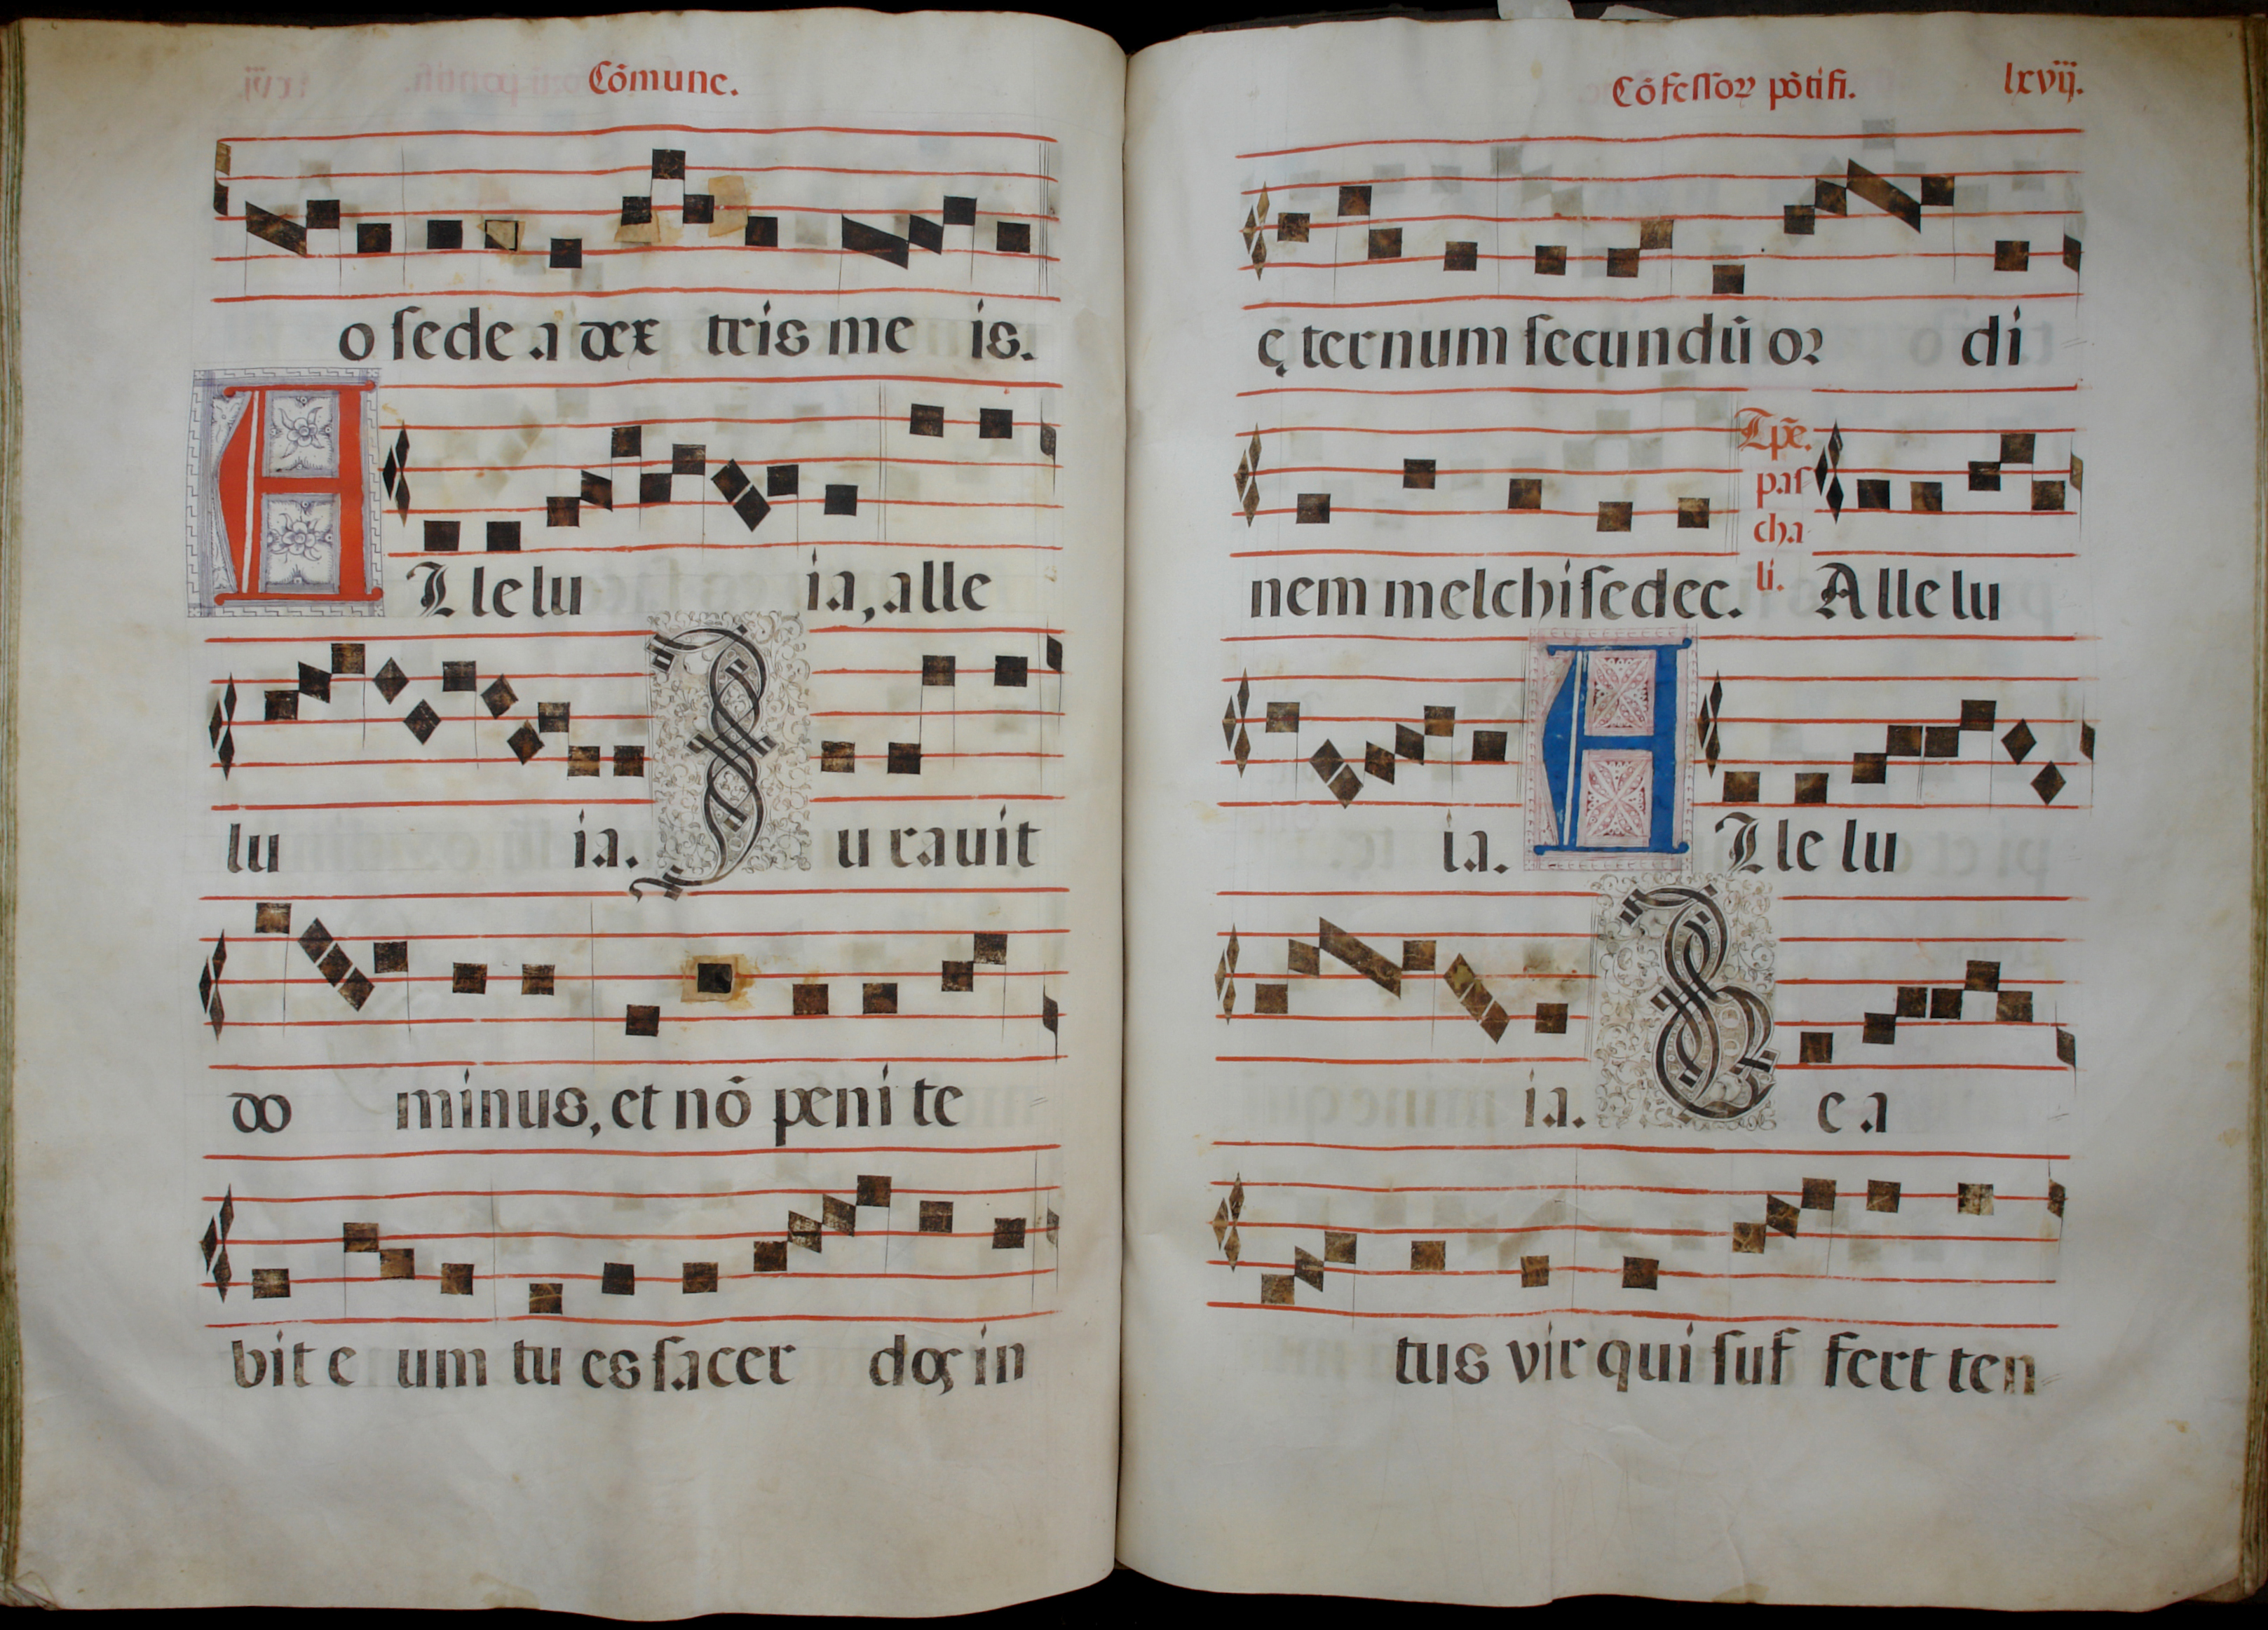 Cõmune.
o sede a dex tris me is.
A Lle lu ia, alle
lu ia. J u rauit
do minus, et nõ peni te
bit e um tu es sacer dos in
Cõfessoꝝ põtifi. lxvij.
ę ternum secundũ oꝛ di
nem melchisedec. Tp̃e. pas cha li. Alle lu
ia. A Lle lu
ia. B e a
tus vir qui suf fert ten